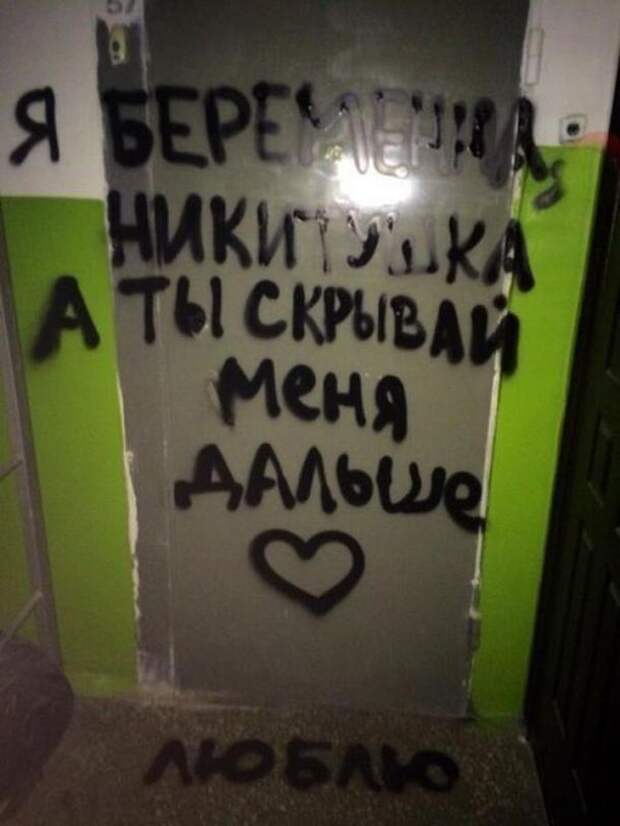 57
Я БЕРЕМЕННА,
НИКИТУШКА
А ТЫ СКРЫВАЙ
Меня
ДАЛЬШе
ЛЮБЛЮ